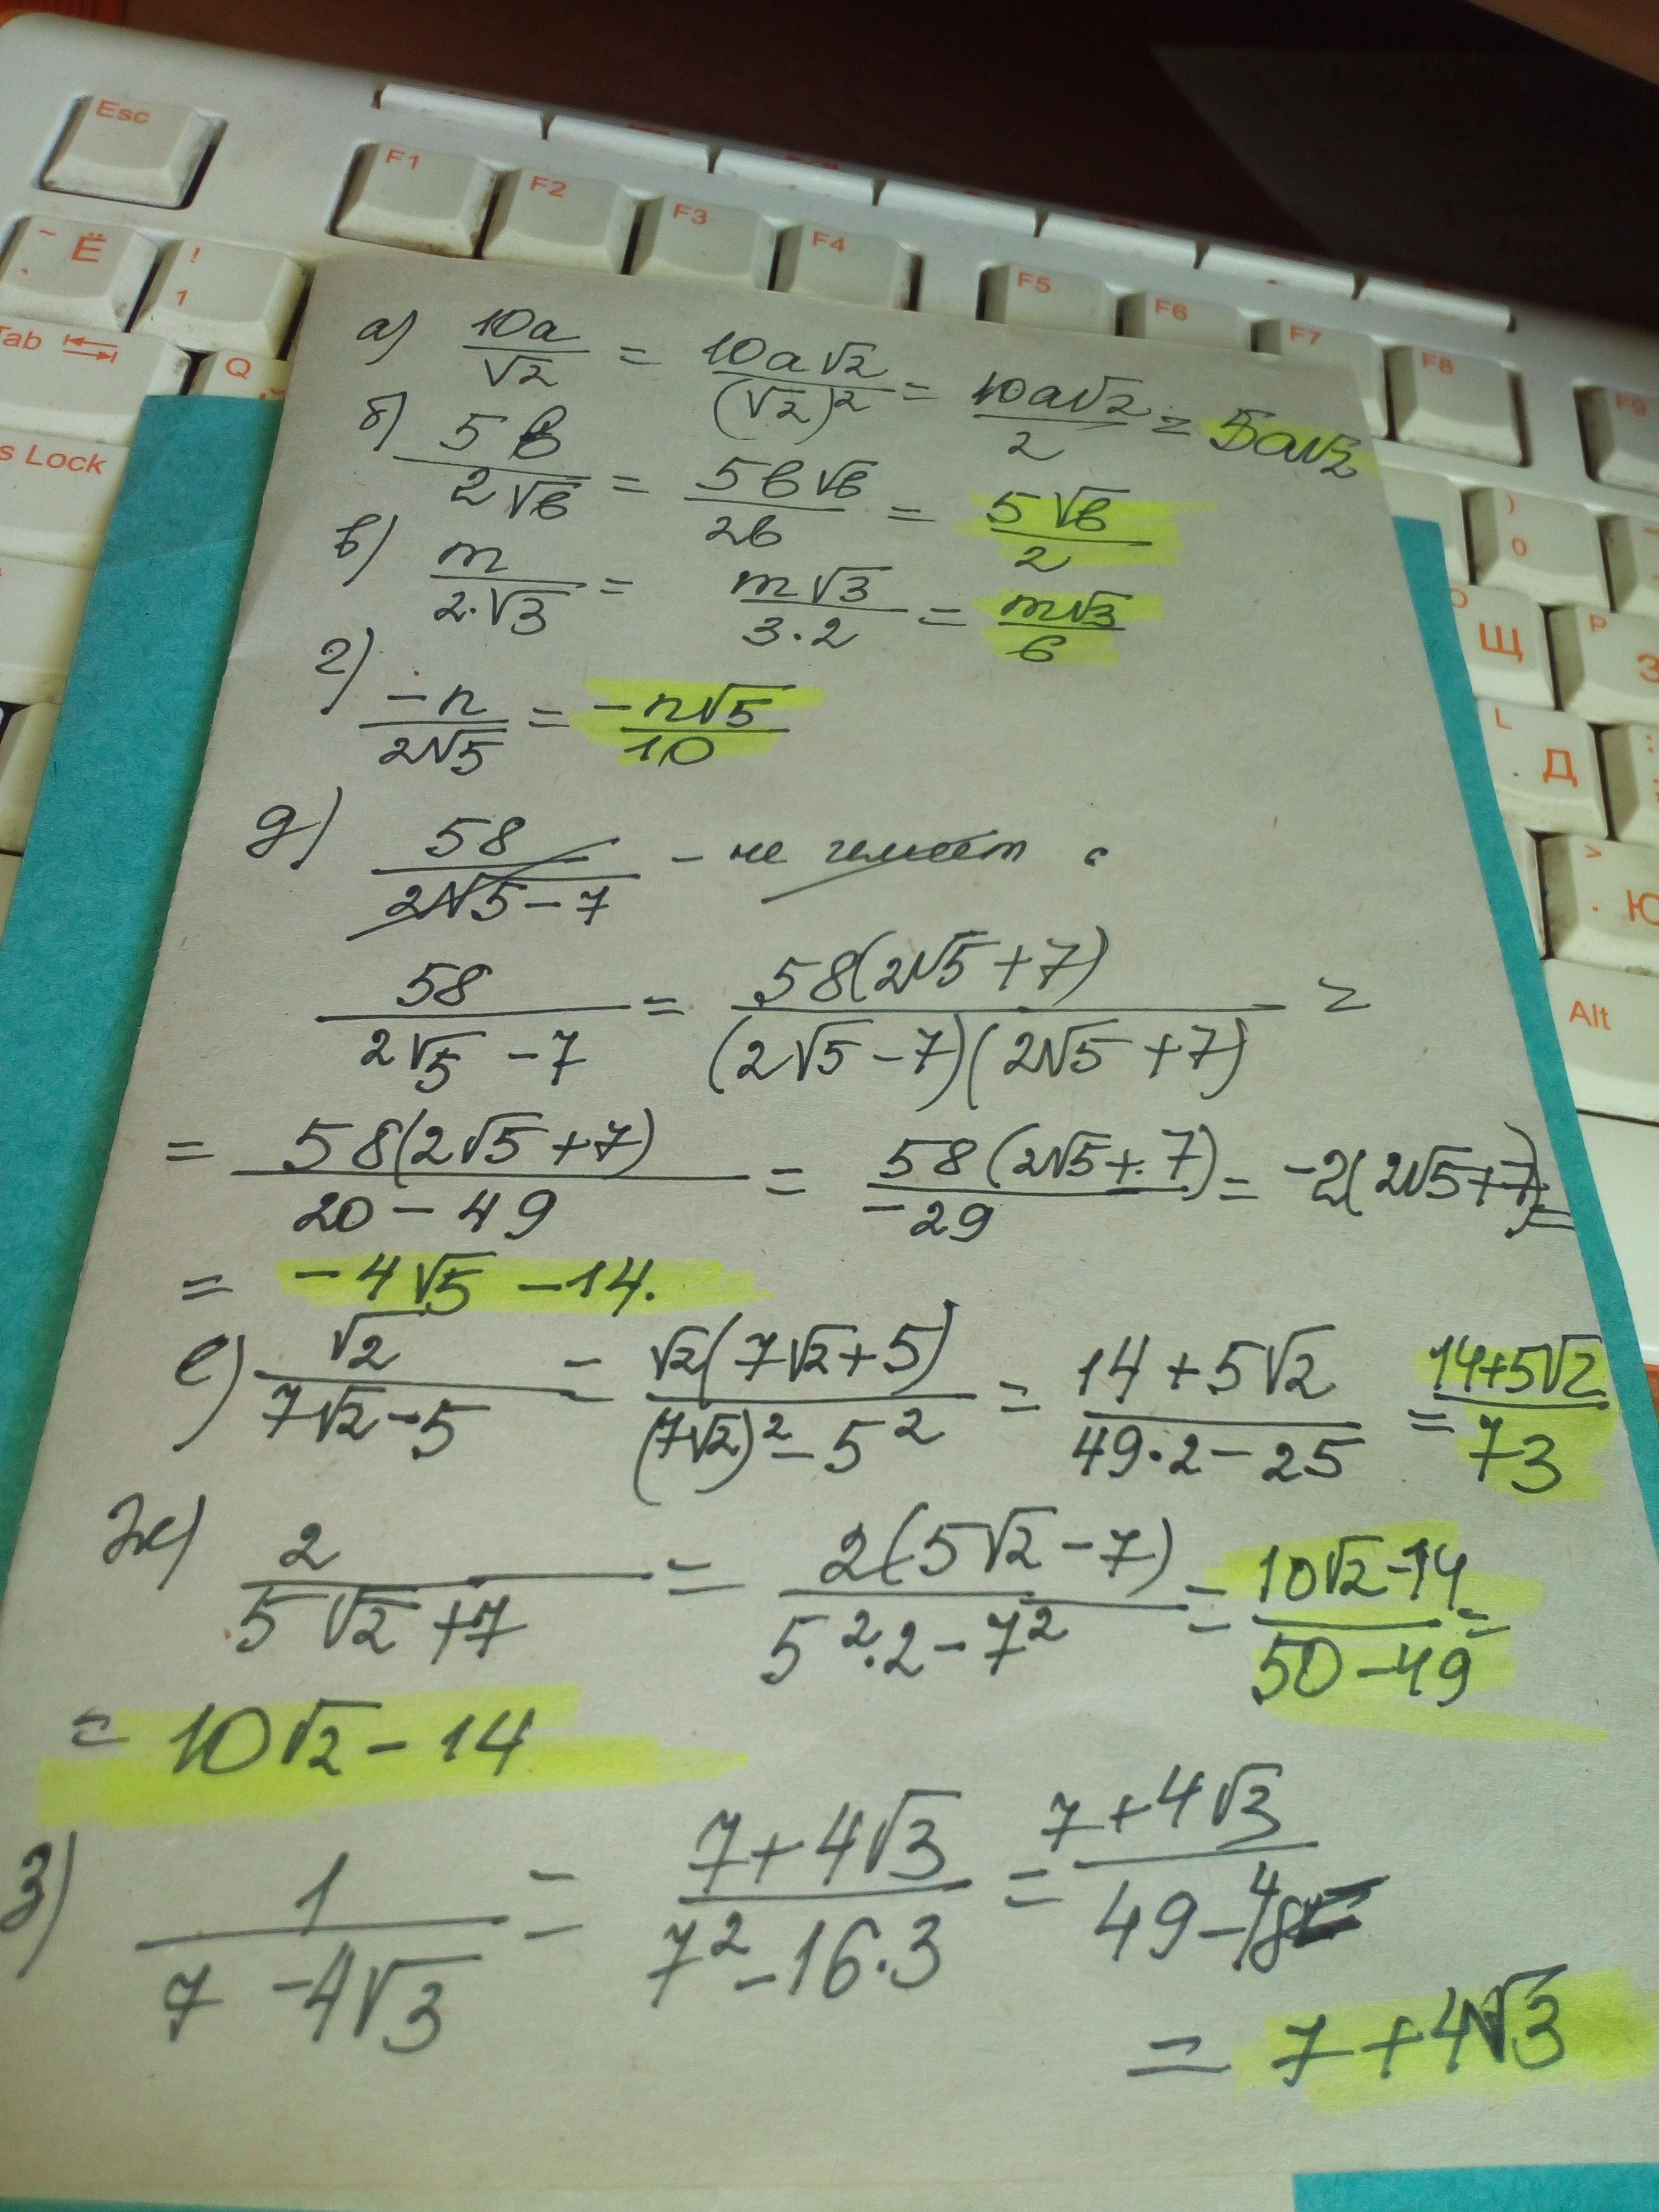 Esc
F1
F2
F3
F4
F5
F6
F7
F8
F9
~ Ё
! 1
Tab
Q
s Lock
) 0
Щ
P З
L Д
> . Ю
Alt
а) 10a/√2 = 10a√2/(√2)² = 10a√2/2 = 5a√2
б) 5в/2√в = 5в√в/2в = 5√в/2
в) m/2·√3 = m√3/3·2 = m√3/6
г) -n/2√5 = -n√5/10
д) 58/2√5-7 - не имеет
58/2√5 -7 = 58(2√5+7)/(2√5-7)(2√5+7) =
= 58(2√5+7)/20-49 = 58(2√5+7)/-29 = -2(2√5+7) =
= -4√5 -14.
е) √2/7√2-5 = √2(7√2+5)/(7√2)²-5² = 14+5√2/49·2-25 = 14+5√2/73
ж) 2/5√2+7 = 2(5√2-7)/5²·2-7² = 10√2-14/50-49 =
= 10√2-14
з) 1/7-4√3 = 7+4√3/7²-16·3 = 7+4√3/49-48
= 7+4√3